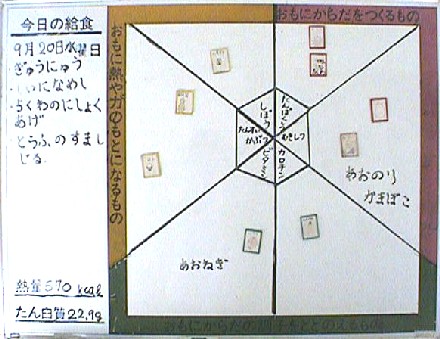 今日の給食
9月20日水曜日
ぎゅうにゅう
なめし
ちくわのにしょく
あげ
とうふのすまし
じる
熱量570kcal
たん白質22.9g
おもに熱や力のもとになるもの
おもにからだをつくるもの
しぼう
たんぱくしつ
むきしつ
カロチン
ビタミンC
あおのり
かまぼこ
あおねぎ
おもにからだの調子をととのえるもの